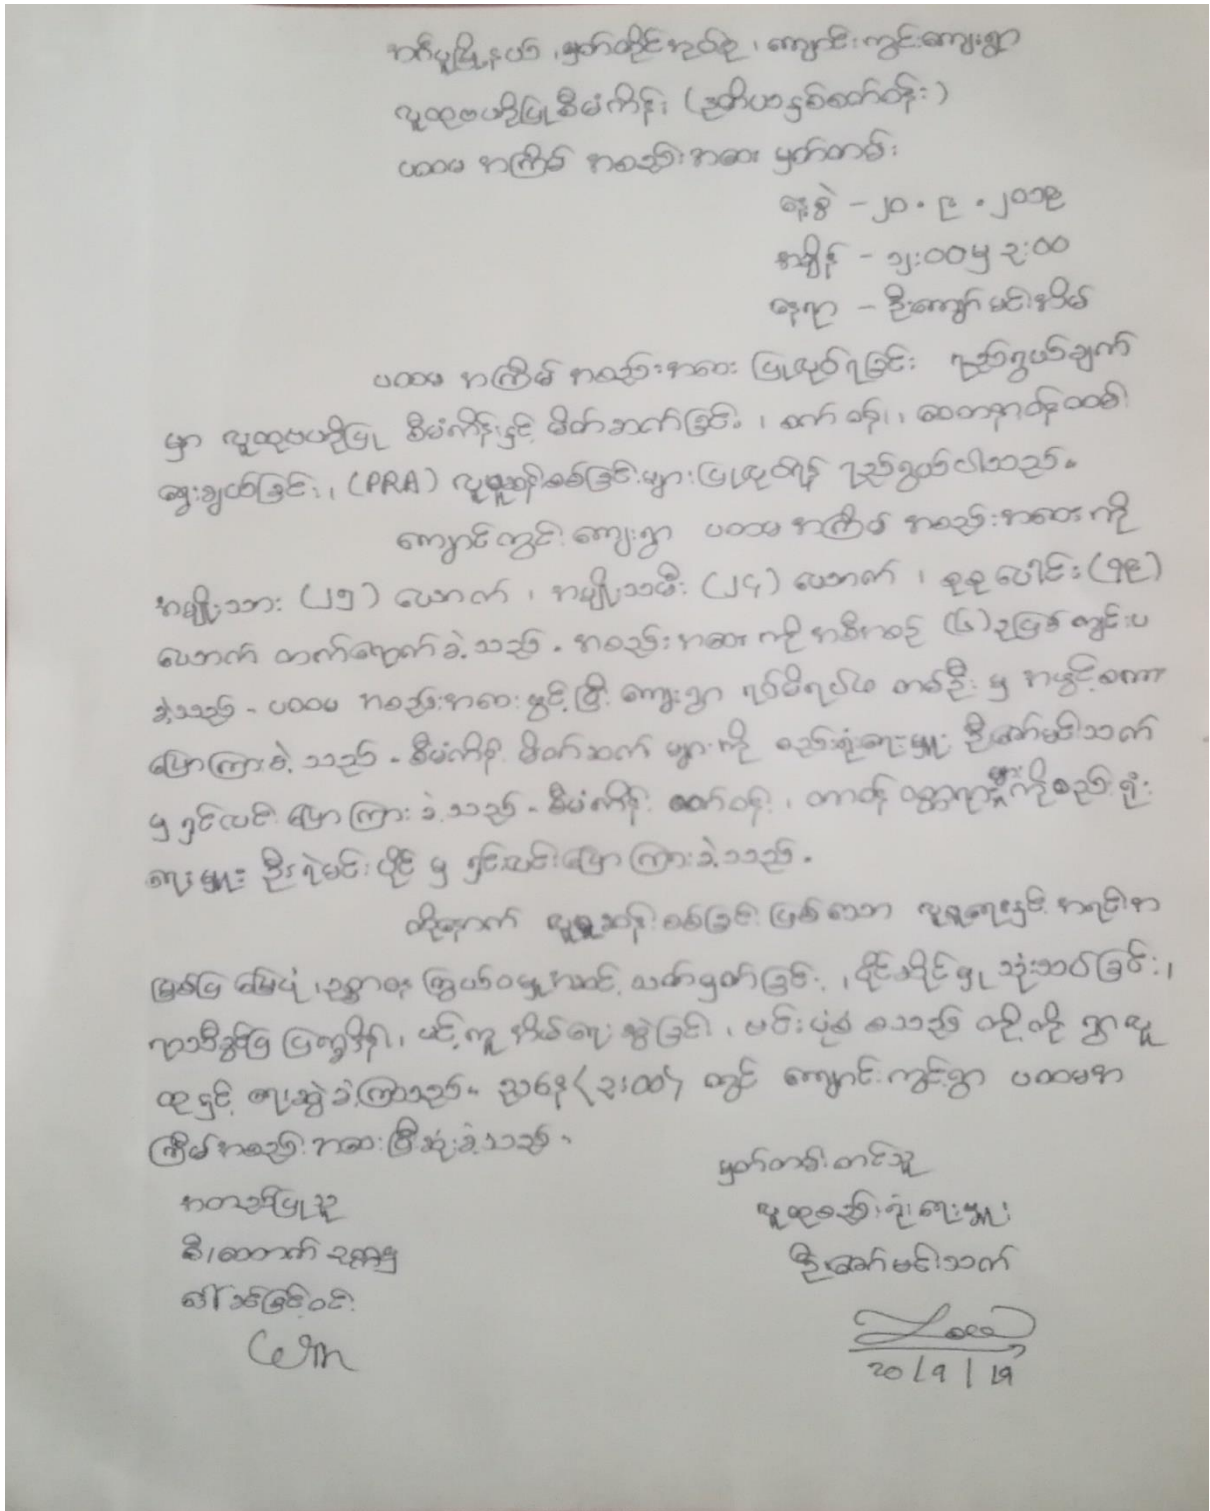 အင်္ဂပူမြို့နယ် ၊ မှတ်တိုင်အုပ်စု ၊ ကျောင်းကွင်းကျေးရွာ
လူထုဗဟိုပြုစီမံကိန်း (ဒုတိယနှစ်စက်ဝန်း)
ပထမ အကြိမ် အစည်းအဝေး မှတ်တမ်း
နေ့စွဲ - ၂၀.၉.၂၀၁၉
အချိန် - ၁၂:၀၀ မှ ၃:၀၀
နေရာ - ဦးကျော်မင်းအိမ်
ပထမ အကြိမ် အစည်းအဝေး ပြုလုပ်ရခြင်း ရည်ရွယ်ချက်
မှာ လူထုဗဟိုပြု စီမံကိန်းနှင့် မိတ်ဆက်ခြင်း ၊ စက်ဝန်း ၊ စေတနာ့ဝန်ထမ်း
ရွေးချယ်ခြင်း ၊ (PRA) လူမှုဆန်းစစ်ခြင်းများပြုလုပ်ရန် ရည်ရွယ်ပါသည်။
ကျောင်းကွင်းကျေးရွာ ပထမအကြိမ် အစည်းအဝေးကို
အမျိုးသား (၂၅) ယောက် ၊ အမျိုးသမီး (၂၄) ယောက် ၊ စုစုပေါင်း (၄၉)
ယောက် တက်ရောက်ခဲ့သည်။ အစည်းအဝေးကို အစီအစဉ် (၆) ခုဖြစ် ကျင်းပ
ခဲ့သည်။ ပထမ အစည်းအဝေးဖွင့်ပြီး ကျေးရွာ ရပ်မိရပ်ဖ တစ်ဦး မှ အဖွင့်စကား
ပြောကြားခဲ့သည်။ စီမံကိန်း မိတ်ဆက် များကို စည်းရုံးရေးမှူး ဦးအော်မင်းသက်
မှ ရှင်းလင်း ပြောကြားခဲ့သည်။ စီမံကိန်း စက်ဝန်း ၊ တာဝန် ဝတ္တရားများကို စည်းရုံး
ရေးမှူး ဦးရဲမင်းပိုင် မှ ရှင်းလင်းပြောကြားခဲ့သည်။
ထို့နောက် လူမှုဆန်းစစ်ခြင်း ဖြစ်သော လူမှုရေးနှင့် အရင်းအ
မြစ်ပြ မြေပုံ ၊ ဥစ္စာဓန ကြွယ်ဝမှုအဆင့် သတ်မှတ်ခြင်း ၊ ပိုင်ဆိုင်မှု သုံးသပ်ခြင်း ၊
ရာသီခွင်ပြ ပြက္ခဒိန် ၊ ပင့်ကူအိမ်ရေးဆွဲခြင်း ၊ ဗင်းပုံစံ စသည် တို့ကို ရွာလူ
ထုနှင့် ရေးဆွဲခဲ့ကြသည်။ ညနေ (၃:၀၀) တွင် ကျောင်းကွင်းရွာ ပထမအ
ကြိမ်အစည်းအဝေးပြီးဆုံးခဲ့သည်။
မှတ်တမ်းတင်သူ
အတည်ပြုသူ
လူထုစည်းရုံးရေးမှူး
စီ/ထောက် ဥက္ကဌ
ဦးအော်မင်းသက်
20/9/19